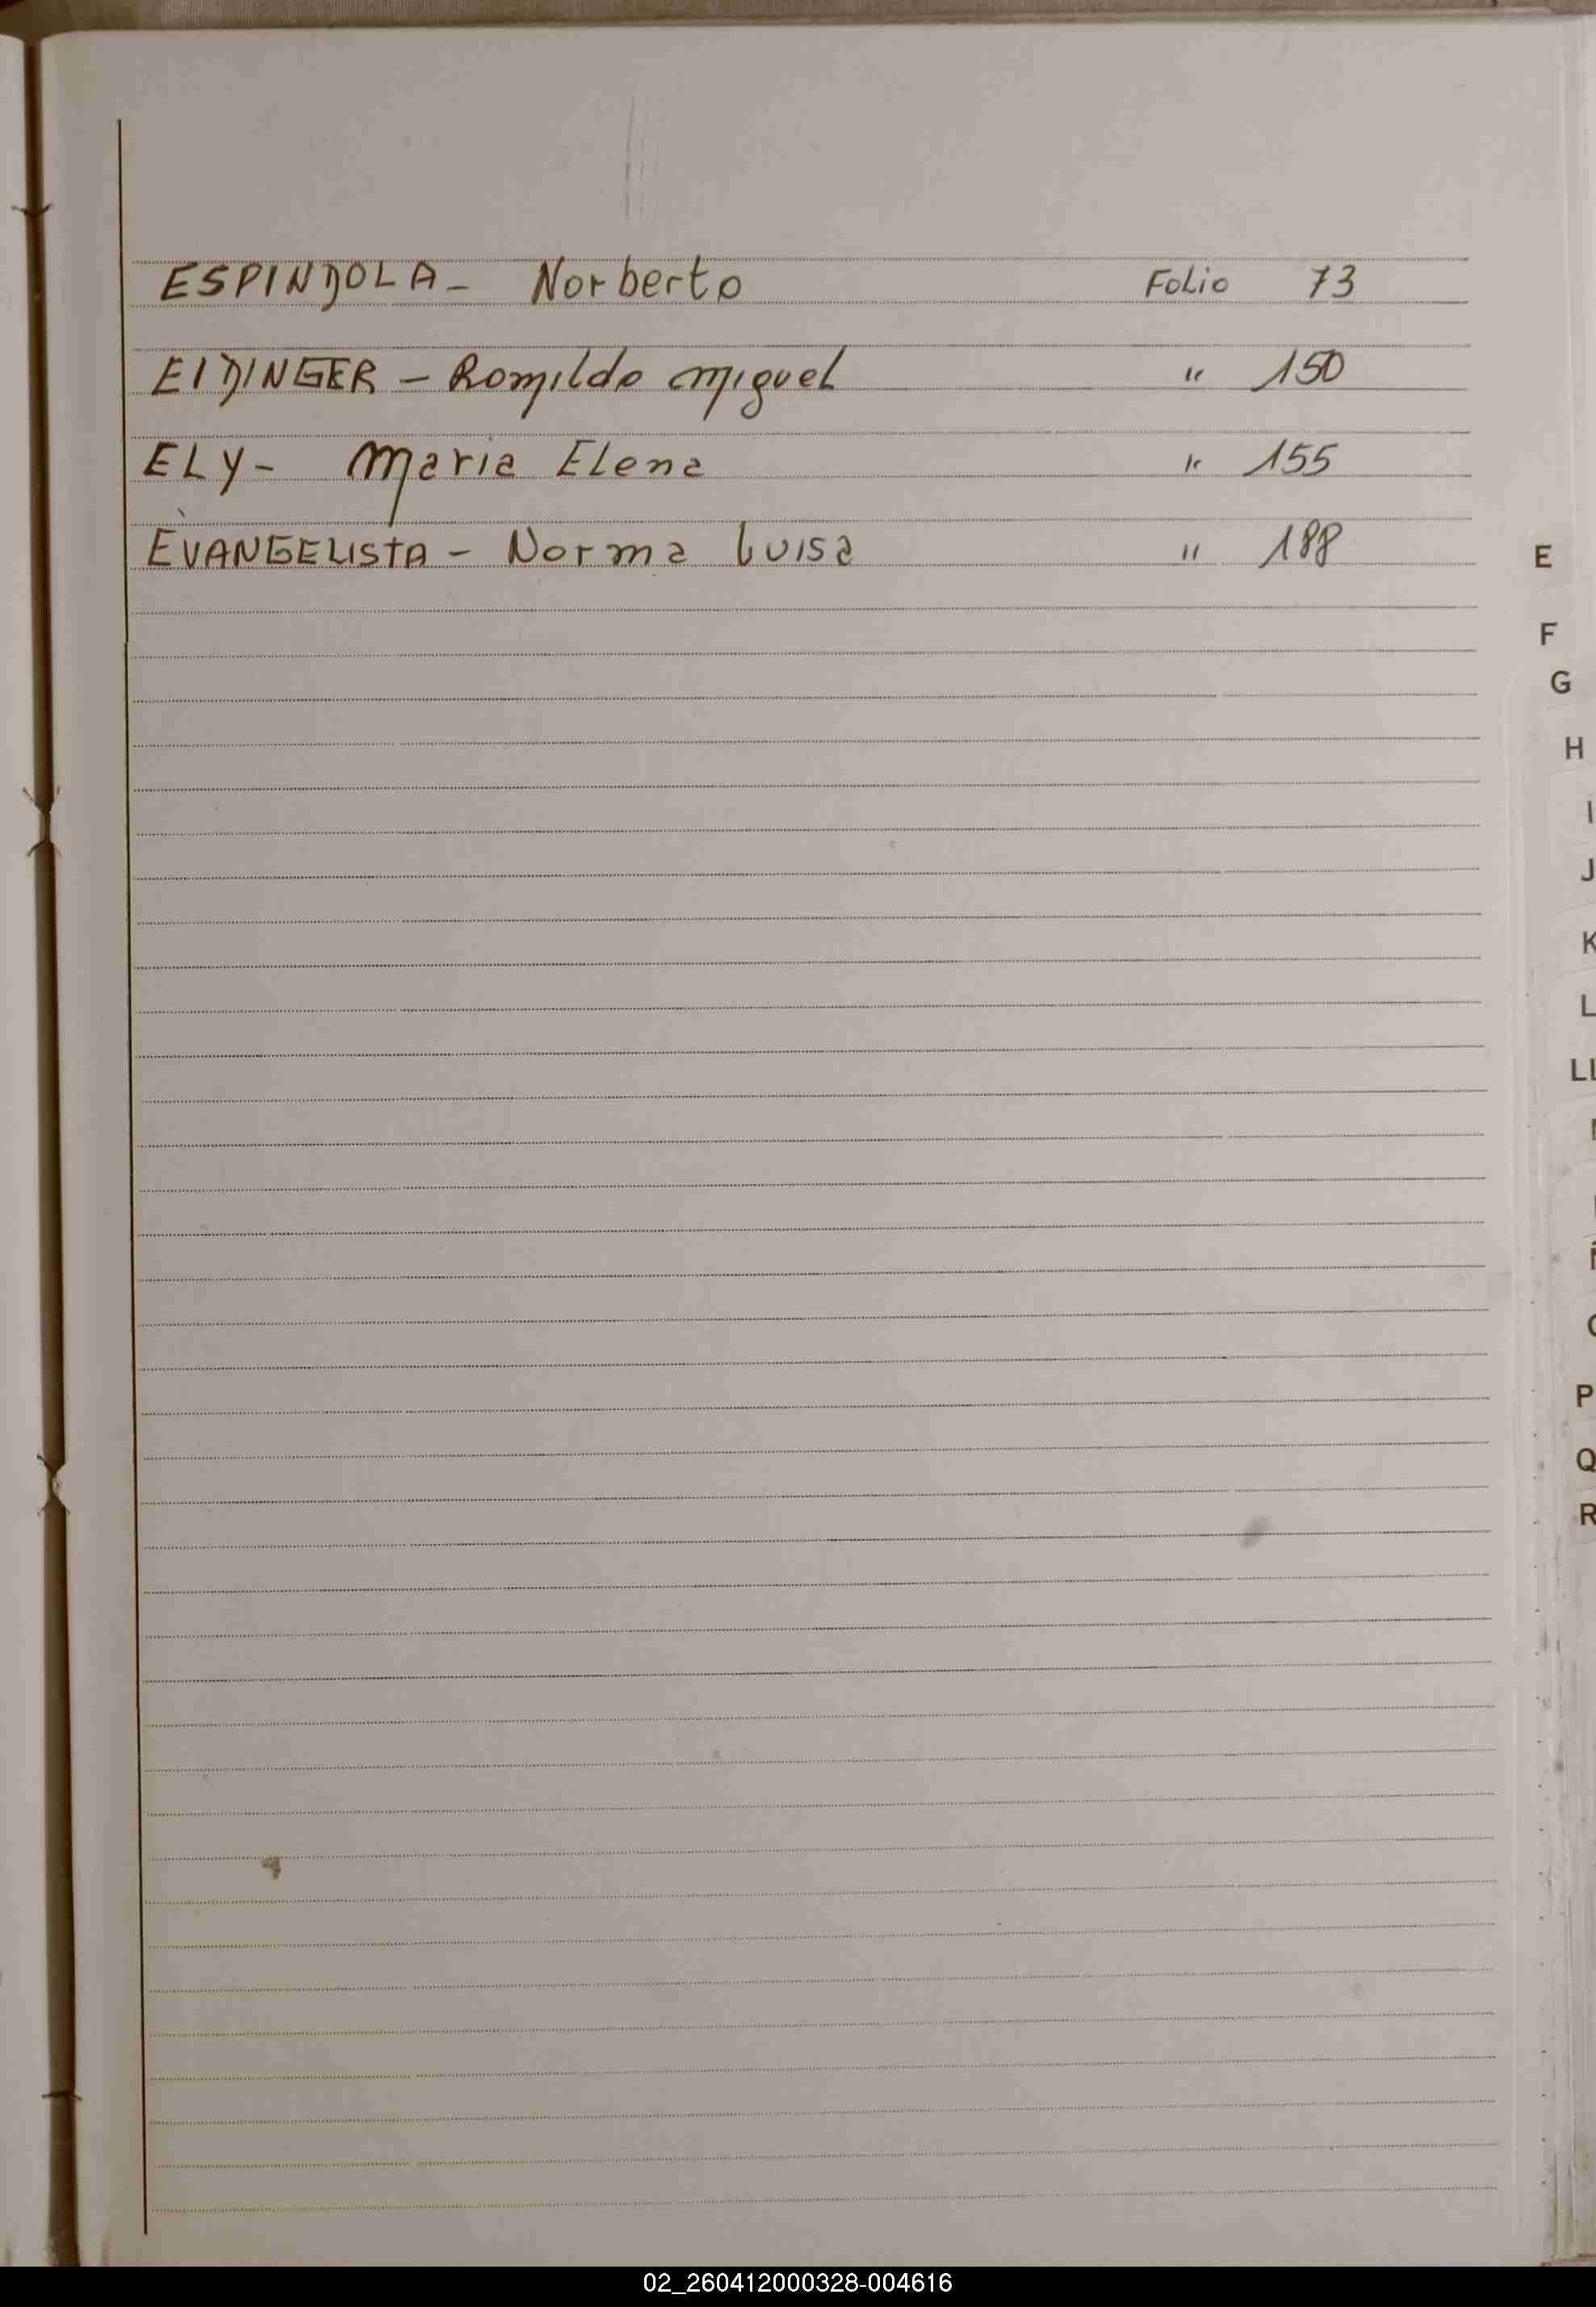 ESPINDOLA - Norberto Folio 73
EIDINGER - Romildo Miguel " 150
ELY - Maria Elena " 155
EVANGELISTA - Norma Luisa " 188
E
F
G
H
I
J
K
L
LL
P
Q
R
02_260412000328-004616